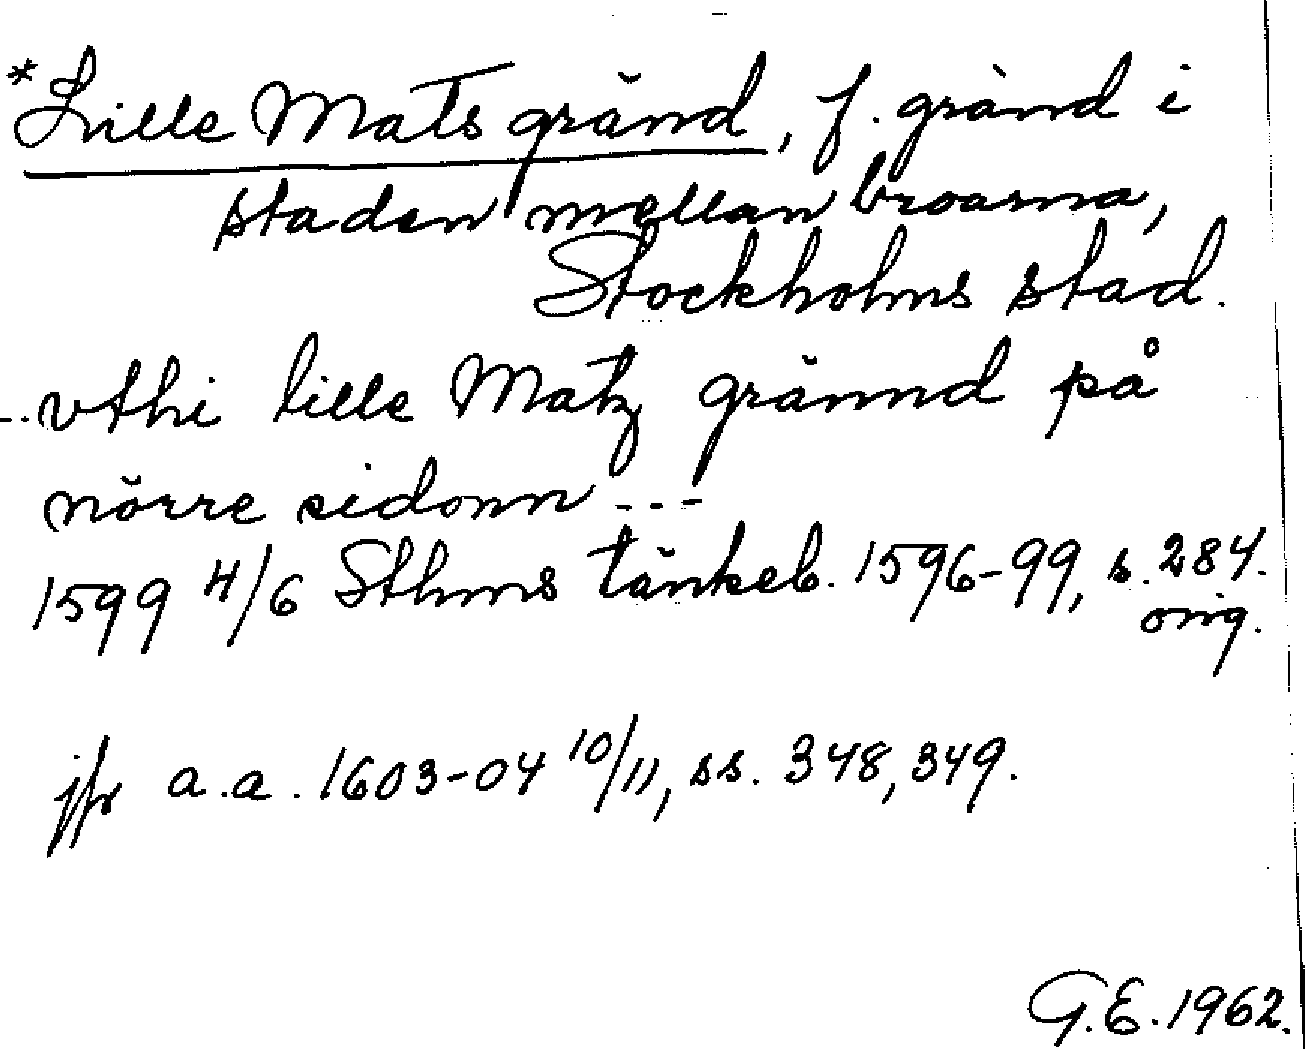 *Lille Mats gränd, f. gränd i
staden mellan broarna,
Stockholms stad.
...vthi lille Matz grännd på
nörre sidonn ---
1599 4/6 Sthms tänkeb. 1596-99, s. 284.
orig.
jfr a.a. 1603-04 10/11, ss. 348, 349.
G.E. 1962.